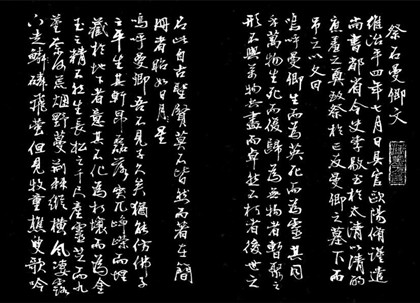 祭石曼卿文
維治平四年七月日具官歐陽脩謹遣
尚書都省令史李敭至於太清以清酌
庶羞之奠致祭於亡友曼卿之墓下而
吊之以文曰
嗚呼曼卿生而為英死而為靈其同
乎萬物生死而復歸為無物者暫聚之
形不與萬物共盡而卓然其不朽者後世之
名此自古聖賢莫不皆然而著在簡
冊者昭如日星
嗚呼曼卿吾不見子久矣猶能仿佛子
之平生其軒昂磊落突兀崢嶸而埋
藏於地下者意其不化為朽壤而為金
玉之精不然生長松之千尺產靈芝而九
莖奈何荒煙野蔓荊棘縱橫風淒露
下走燐飛螢但見牧童樵叟歌吟